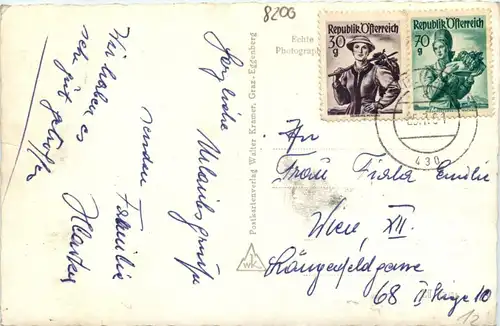 8206
Echte
Photograph
Republik Österreich
30
g
Republik Österreich
70
g
430
Postkartenverlag Walter Kramer, Graz-Eggenberg
WK
Herzliche Urlaubsgrüße
senden Familie
Wir haben es
sehr gut getroffen
An
Frau Fiala Emilie
Wien XII.
Längenfeldgasse
68 II Stiege 10
12